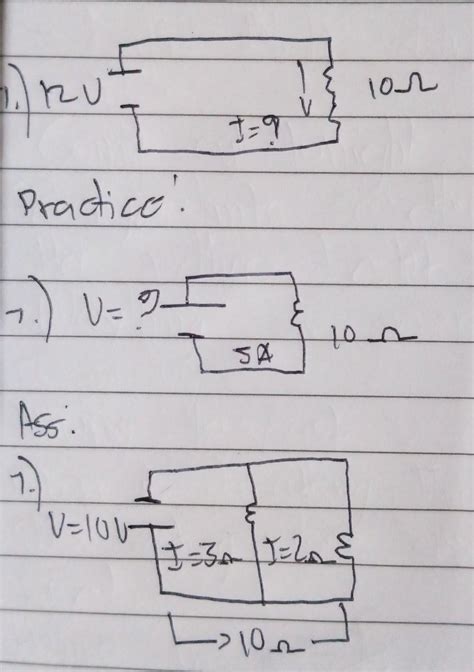 1.) 12V
10Ω
V
I=?
Practice:
1.) V= ?
10Ω
5A
Ass:
1.)
V=10V
I=3Ω I=2Ω
10Ω